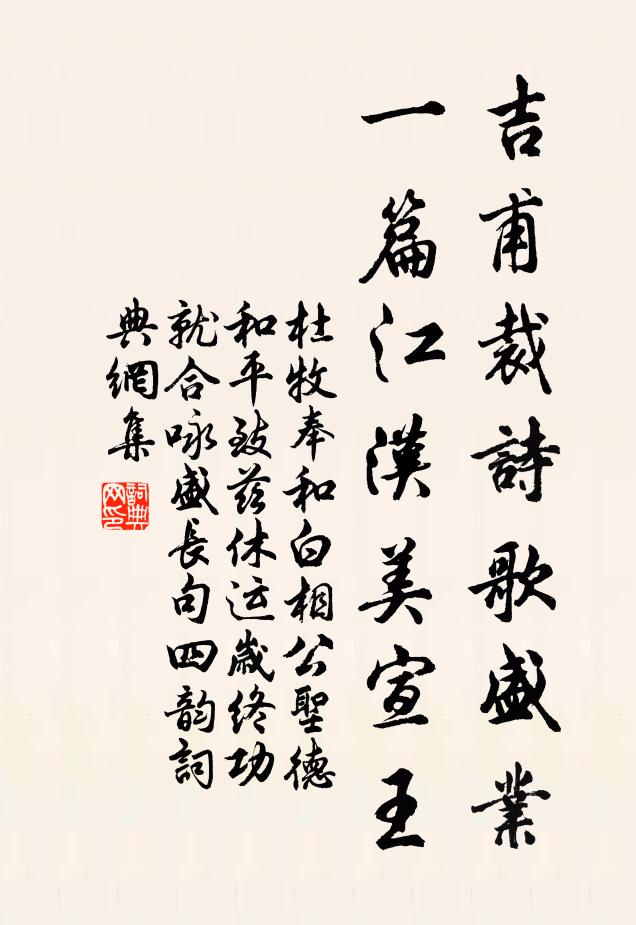 吉甫裁詩歌盛業
一篇江漢美宣王
杜牧奉和白相公聖德
和平致兹休运歲終功
就合咏盛長句四韵詞
典網集
詞典网印